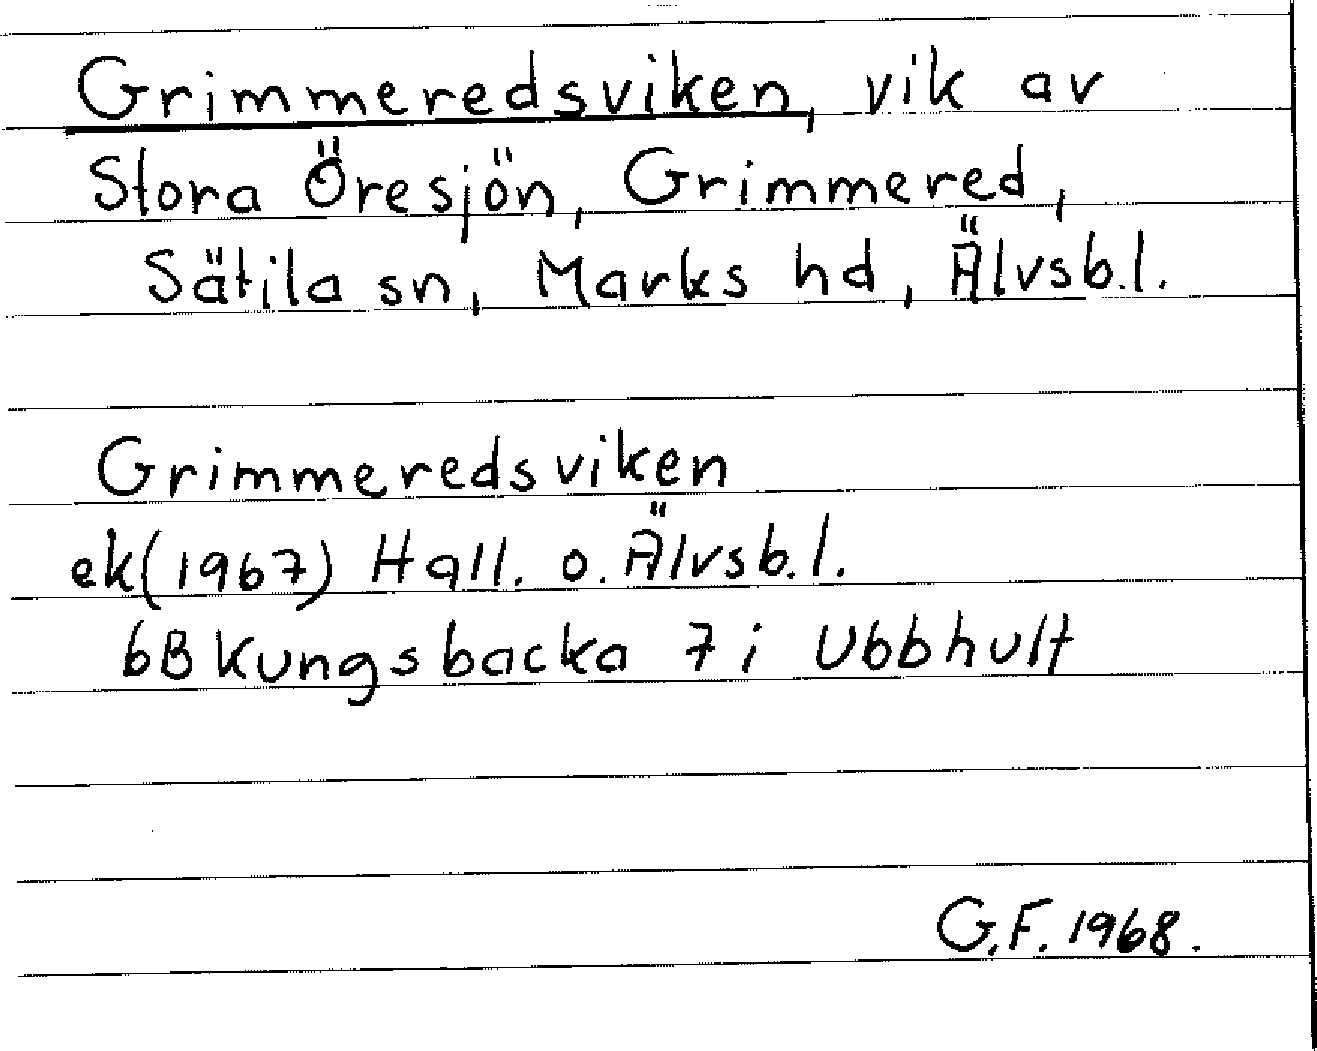 Grimmeredsviken, vik av
Stora Öresjön, Grimmered,
Sätila sn, Marks hd, Älvsb.l.
Grimmeredsviken
ek(1967) Hall. o. Älvsb.l.
6B Kungsbacka 7i Ubbhult
G.F. 1968.